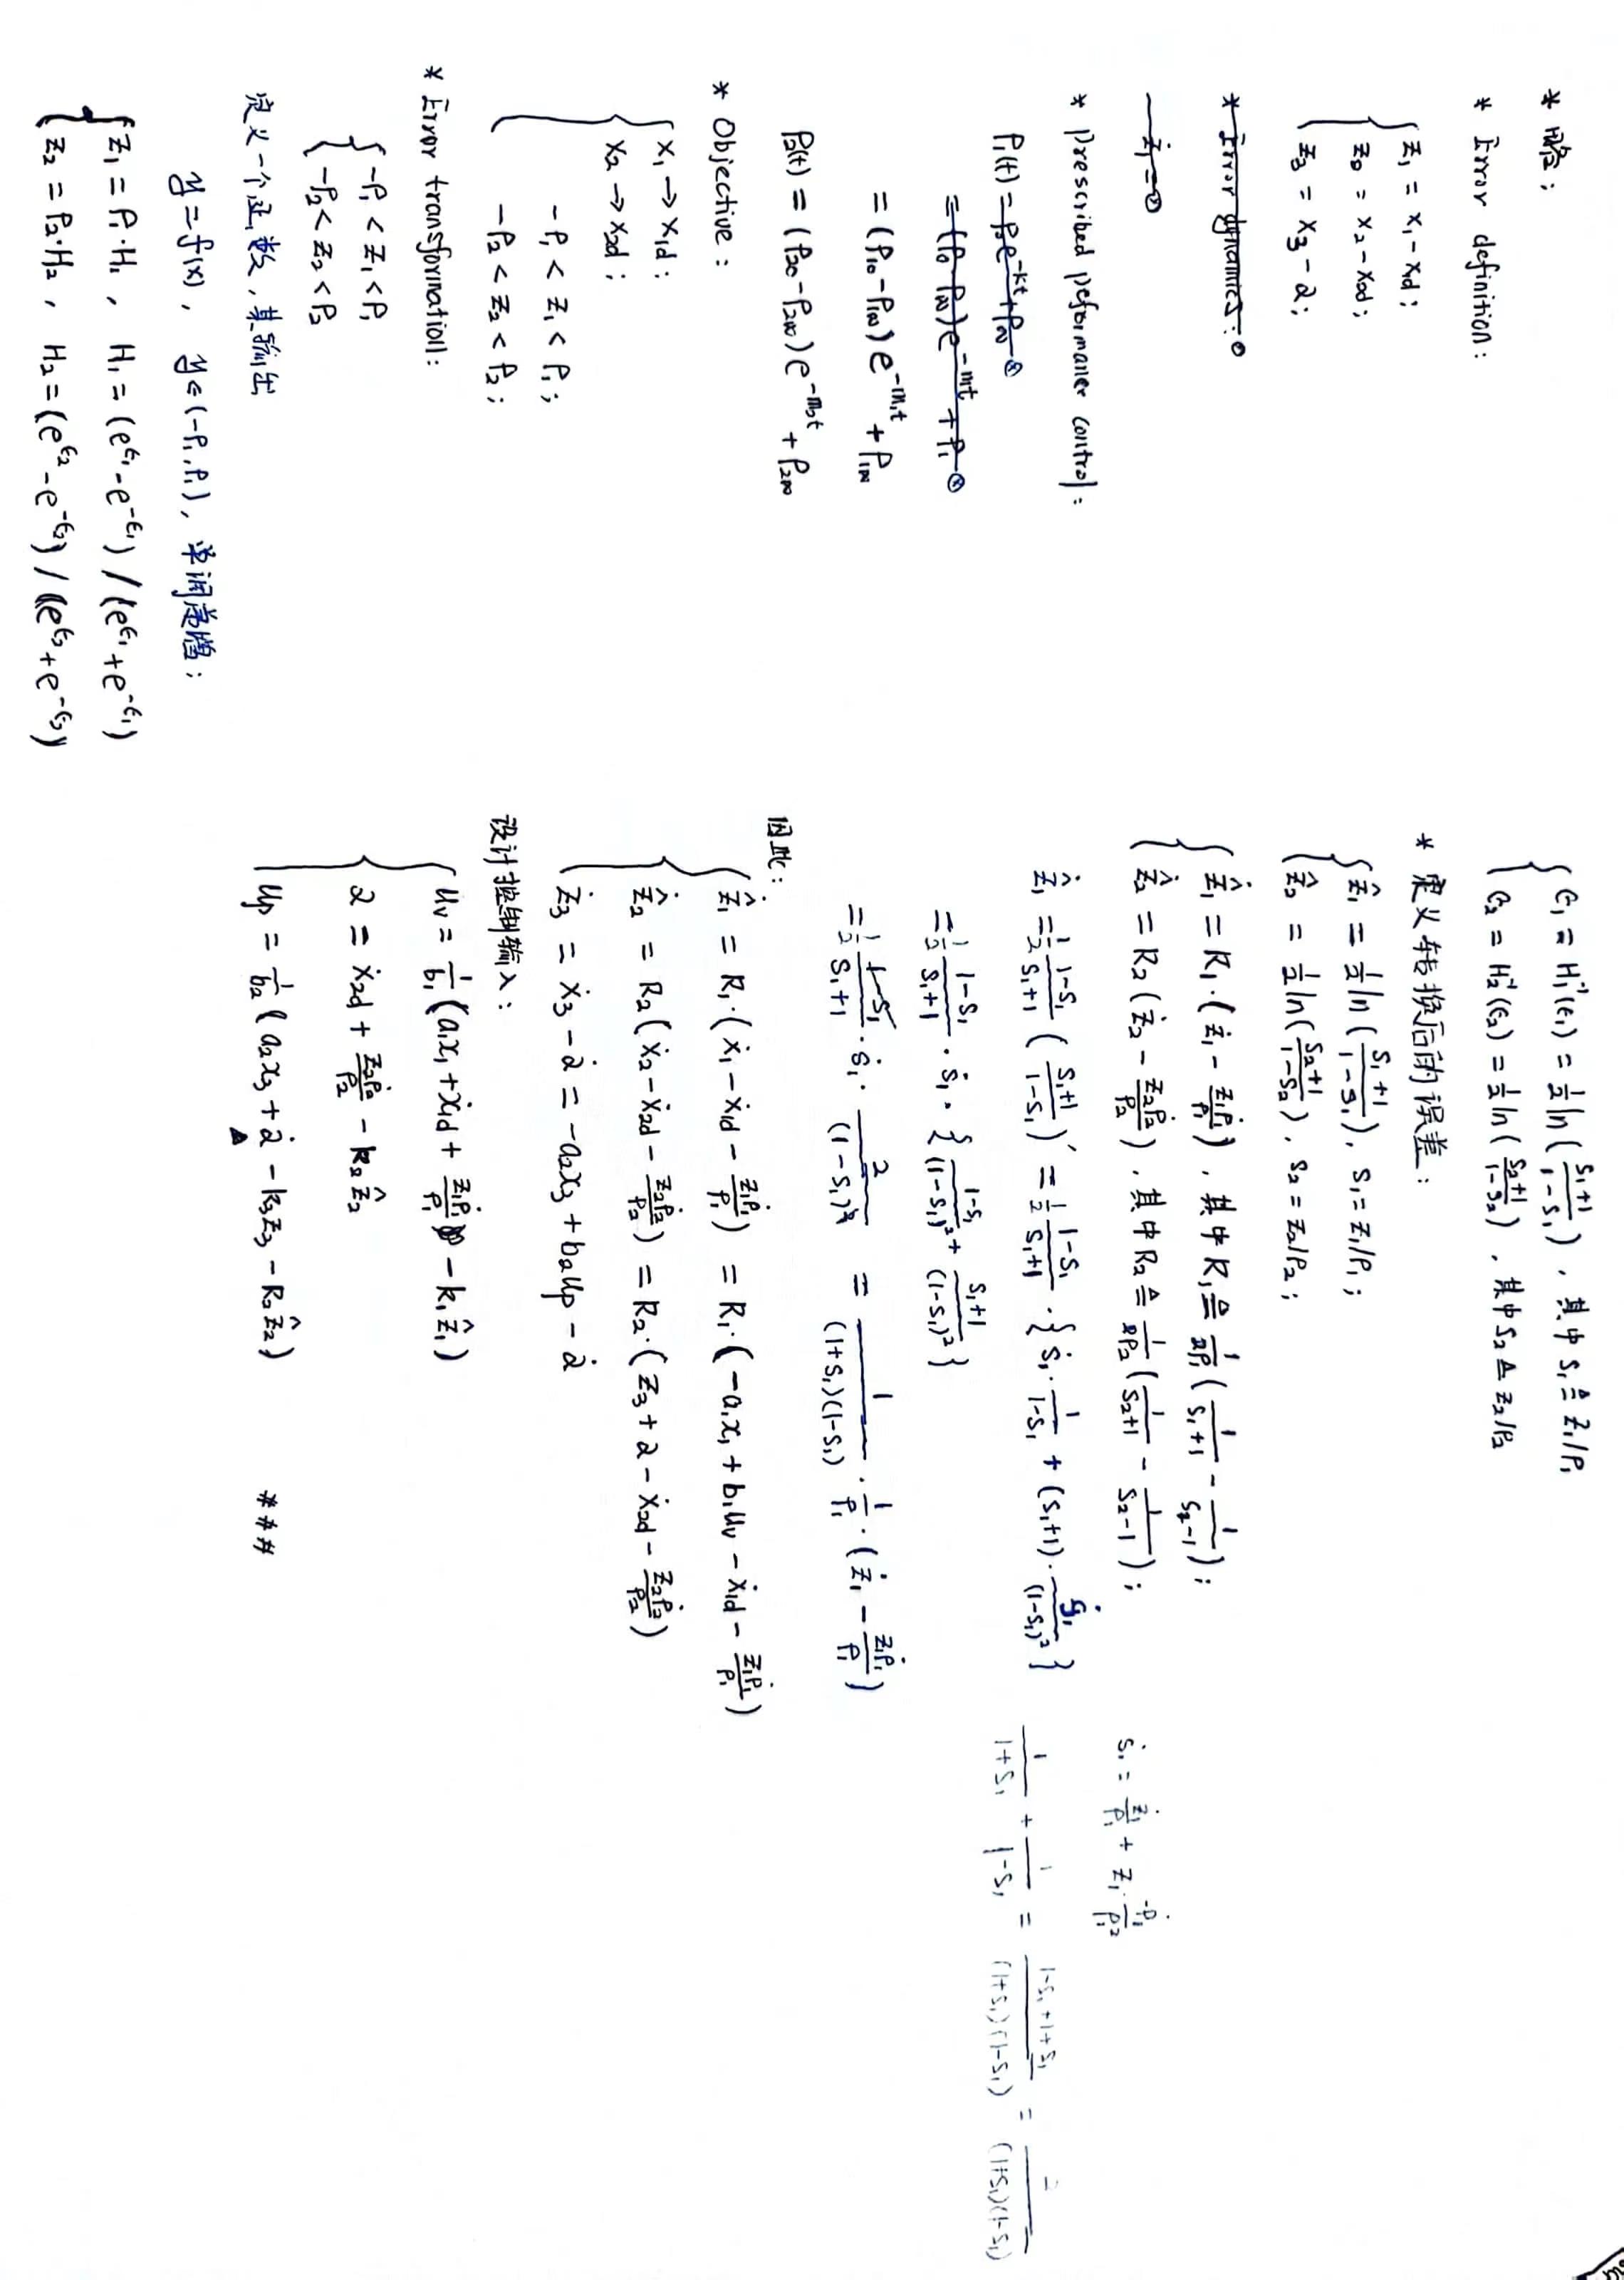 * 略；
* Error definition:
z₁ = x₁ - x₁d;
z₂ = x₂ - x₂d;
z₃ = x₃ - α;
* Error dynamics:
ż₁ =
* Prescribed peformance control:
ρ₁(t) = ρ₀e^{-kt} + ρ∞
= (ρ₀ - ρ∞)e^{-mt} + ρ₁
= (ρ₁₀ - ρ₁∞)e^{-m₁t} + ρ₁∞
ρ₂(t) = (ρ₂₀ - ρ₂∞)e^{-m₂t} + ρ₂∞
* Objective:
x₁ → x₁d;
x₂ → x₂d;
-ρ₁ < z₁ < ρ₁;
-ρ₂ < z₂ < ρ₂;
* Error transformation:
-ρ₁ < z₁ < ρ₁
-ρ₂ < z₂ < ρ₂
定义一个函数，其输出
y = f(x), y∈(-ρ₁, ρ₁), 单调递增;
z₁ = ρ₁·H₁, H₁ = (e^{ϵ₁} - e^{-ϵ₁}) / (e^{ϵ₁} + e^{-ϵ₁})
z₂ = ρ₂·H₂, H₂ = (e^{ϵ₂} - e^{-ϵ₂}) / (e^{ϵ₂} + e^{-ϵ₂})
ϵ₁ = H₁⁻¹(ϵ₁) = 1/2 ln((s₁+1)/(1-s₁)), 其中 s₁ ≜ z₁/ρ₁
ϵ₂ = H₂⁻¹(ϵ₂) = 1/2 ln((s₂+1)/(1-s₂)), 其中 s₂ ≜ z₂/ρ₂
* 定义转换后的误差：
ẑ₁ = 1/2 ln((s₁+1)/(1-s₁)), s₁ = z₁/ρ₁;
ẑ₂ = 1/2 ln((s₂+1)/(1-s₂)), s₂ = z₂/ρ₂;
ẑ̇₁ = R₁·(ż₁ - z₁ρ̇₁/ρ₁), 其中 R₁ ≜ 1/(2ρ₁) (1/(s₁+1) - 1/(s₁-1));
ẑ̇₂ = R₂(ż₂ - z₂ρ̇₂/ρ₂), 其中 R₂ ≜ 1/(2ρ₂) (1/(s₂+1) - 1/(s₂-1));
ṡ₁ = ż₁/ρ₁ + z₁·(-ρ̇₁)/ρ₁²
ẑ̇₁ = 1/2 (1-s₁)/(s₁+1) ((s₁+1)/(1-s₁))′ = 1/2 (1-s₁)/(s₁+1)·{ṡ₁·1/(1-s₁) + (s₁+1)·ṡ₁/(1-s₁)²}
1/(1+s₁) + 1/(1-s₁) = (1-s₁+1+s₁)/((1+s₁)(1-s₁)) = 2/((1+s₁)(1-s₁))
= 1/2 (1-s₁)/(s₁+1)·ṡ₁·{(1-s₁)/(1-s₁)² + (s₁+1)/(1-s₁)²}
= 1/2 (1-s₁)/(s₁+1)·ṡ₁·2/(1-s₁)² = 1/((1+s₁)(1-s₁))·1/ρ₁·(ż₁ - z₁ρ̇₁/ρ₁)
因此：
ẑ̇₁ = R₁·(ẋ₁ - ẋ₁d - z₁ρ̇₁/ρ₁) = R₁·(-a₁x₁ + b₁uv - ẋ₁d - z₁ρ̇₁/ρ₁)
ẑ̇₂ = R₂(ẋ₂ - ẋ₂d - z₂ρ̇₂/ρ₂) = R₂·(z₃ + α - ẋ₂d - z₂ρ̇₂/ρ₂)
ż₃ = ẋ₃ - α̇ = -a₂x₃ + b₂up - α̇
设计控制输入：
uv = 1/b₁ (a₁x₁ + ẋ₁d + z₁ρ̇₁/ρ₁ - k₁ẑ₁)
α = ẋ₂d + z₂ρ̇₂/ρ₂ - k₂ẑ₂
up = 1/b₂ (a₂x₃ + α̇ - k₃z₃ - R₂ẑ₂) ###